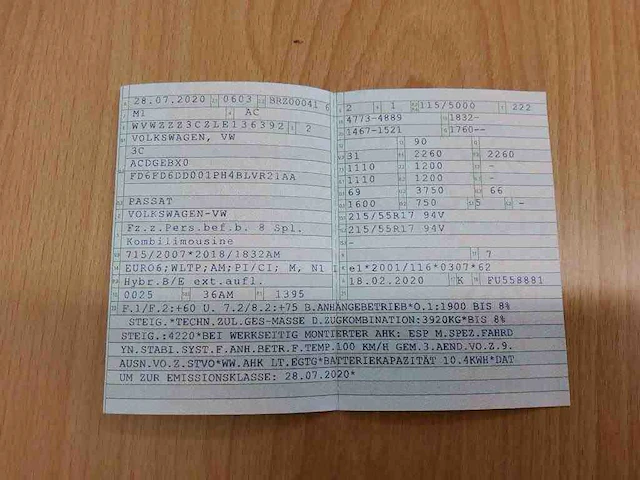 28.07.2020 0603 BRZ00041 6
M1 AC
WVWZZZ3CZLE136392 2
VOLKSWAGEN, VW
3C
ACDGEBX0
FD6FD6DD001PH4BLVR21AA
PASSAT
VOLKSWAGEN-VW
Fz.z.Pers.bef.b. 8 Spl.
Kombilimousine
715/2007*2018/1832AM
EURO6;WLTP;AM;PI/CI; M, N1 I
Hybr.B/E ext.aufl.
0025 36AM 1395
2 1 115/5000 222
4773-4889 1832-
1467-1521 1760--
90
31 2260 2260
1110 1200 -
1110 1200 -
69 3750 66
1600 750 5 -
215/55R17 94V
215/55R17 94V
-
7
e1*2001/116*0307*62
18.02.2020 K FU558881
F.1/F.2:+60 U. 7.2/8.2:+75 B.ANHANGEBETRIEB*O.1:1900 BIS 8%
STEIG.*TECHN.ZUL.GES-MASSE D.ZUGKOMBINATION:3920KG*BIS 8%
STEIG.:4220*BEI WERKSEITIG MONTIERTER AHK: ESP M.SPEZ.FAHRD
YN.STABI.SYST.F.ANH.BETR.F.TEMP.100 KM/H GEM.3.AEND.VO.Z.9.
AUSN.VO.Z.STVO*WW.AHK LT.EGTG*BATTERIEKAPAZITÄT 10.4KWH*DAT
UM ZUR EMISSIONSKLASSE: 28.07.2020*